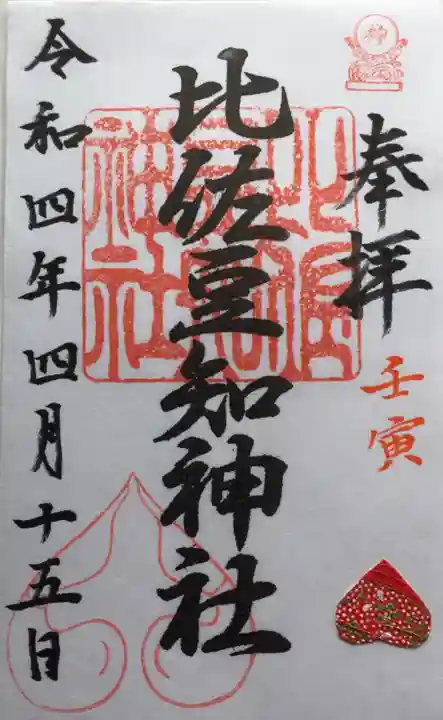 神
奉拝
壬寅
比佐豆知神社
令和四年四月十五日